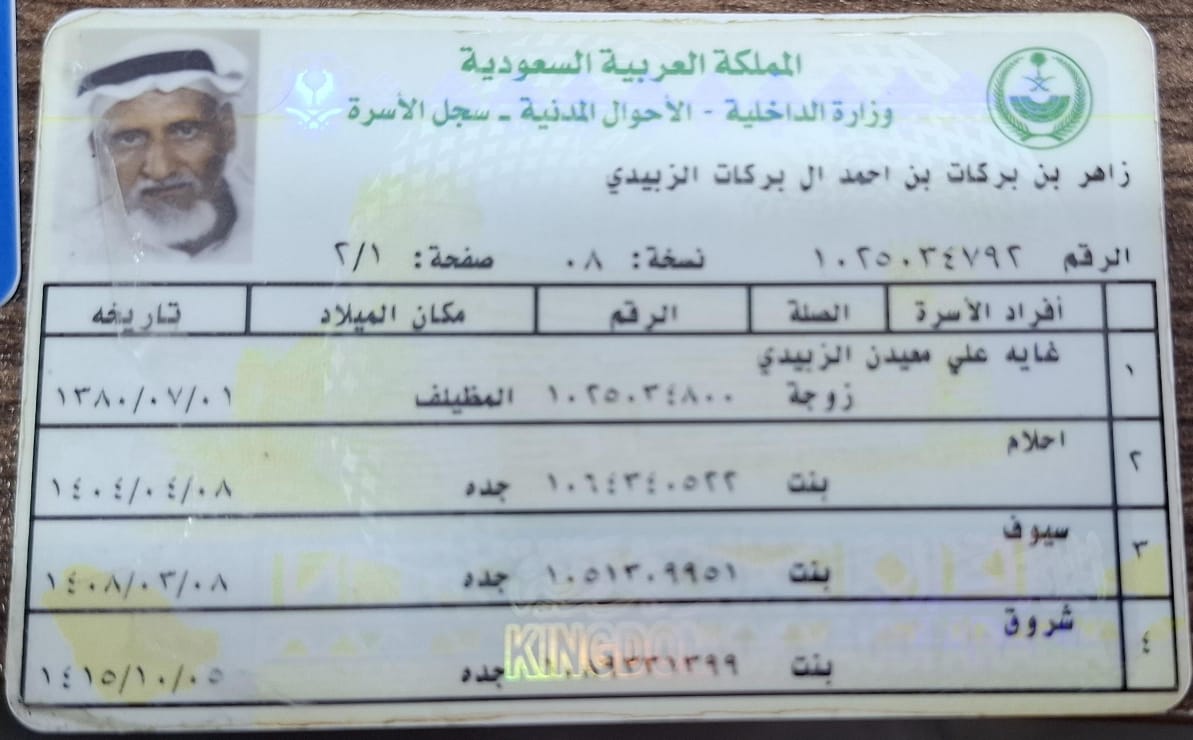 المملكة العربية السعودية
وزارة الداخلية - الأحوال المدنية - سجل الأسرة
زاهر بن بركات بن احمد ال بركات الزبيدي
الرقم ١٠٢٥٠٣٤٧٩٢ نسخة: ٠٨ صفحة: ٢/١
أفراد الأسرة الصلة الرقم مكان الميلاد تاريخه
١ غايه علي معيدن الزبيدي
زوجة ١٠٢٥٠٣٤٨٠٠ المظيلف ١٣٨٠/٠٧/٠١
٢ احلام
بنت ١٠٦٤٣٤٠٥٢٢ جده ١٤٠٤/٠٤/٠٨
٣ سيوف
بنت ١٠٥١٣٠٩٩٥١ جده ١٤٠٨/٠٣/٠٨
٤ شروق
بنت جده ١٤١٥/١٠/٠٥